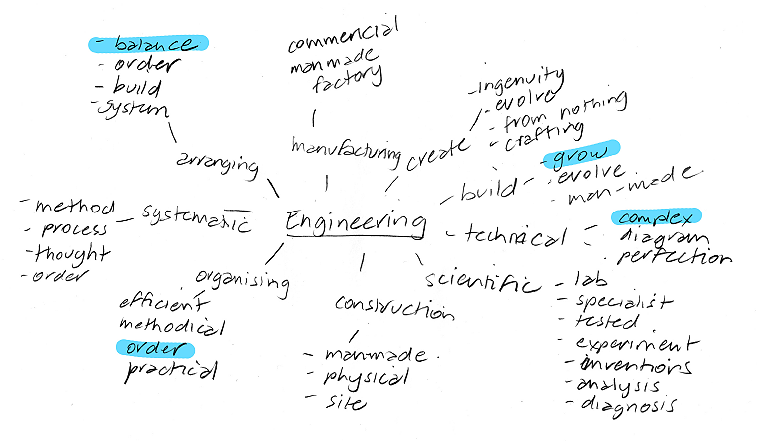 - balance
- order
- build
- system
arranging
commercial
manmade
factory
manufacturing
- ingenuity
- evolve
- from nothing
- crafting
create
build
- grow
- evolve
- man-made
Engineering
systematic
- method
- process
- thought
- order
technical
- complex
diagram
perfection
organising
efficient
methodical
order
practical
construction
- manmade
- physical
- site
scientific
- lab
- specialist
- tested
- experiment
- inventions
- analysis
- diagnosis